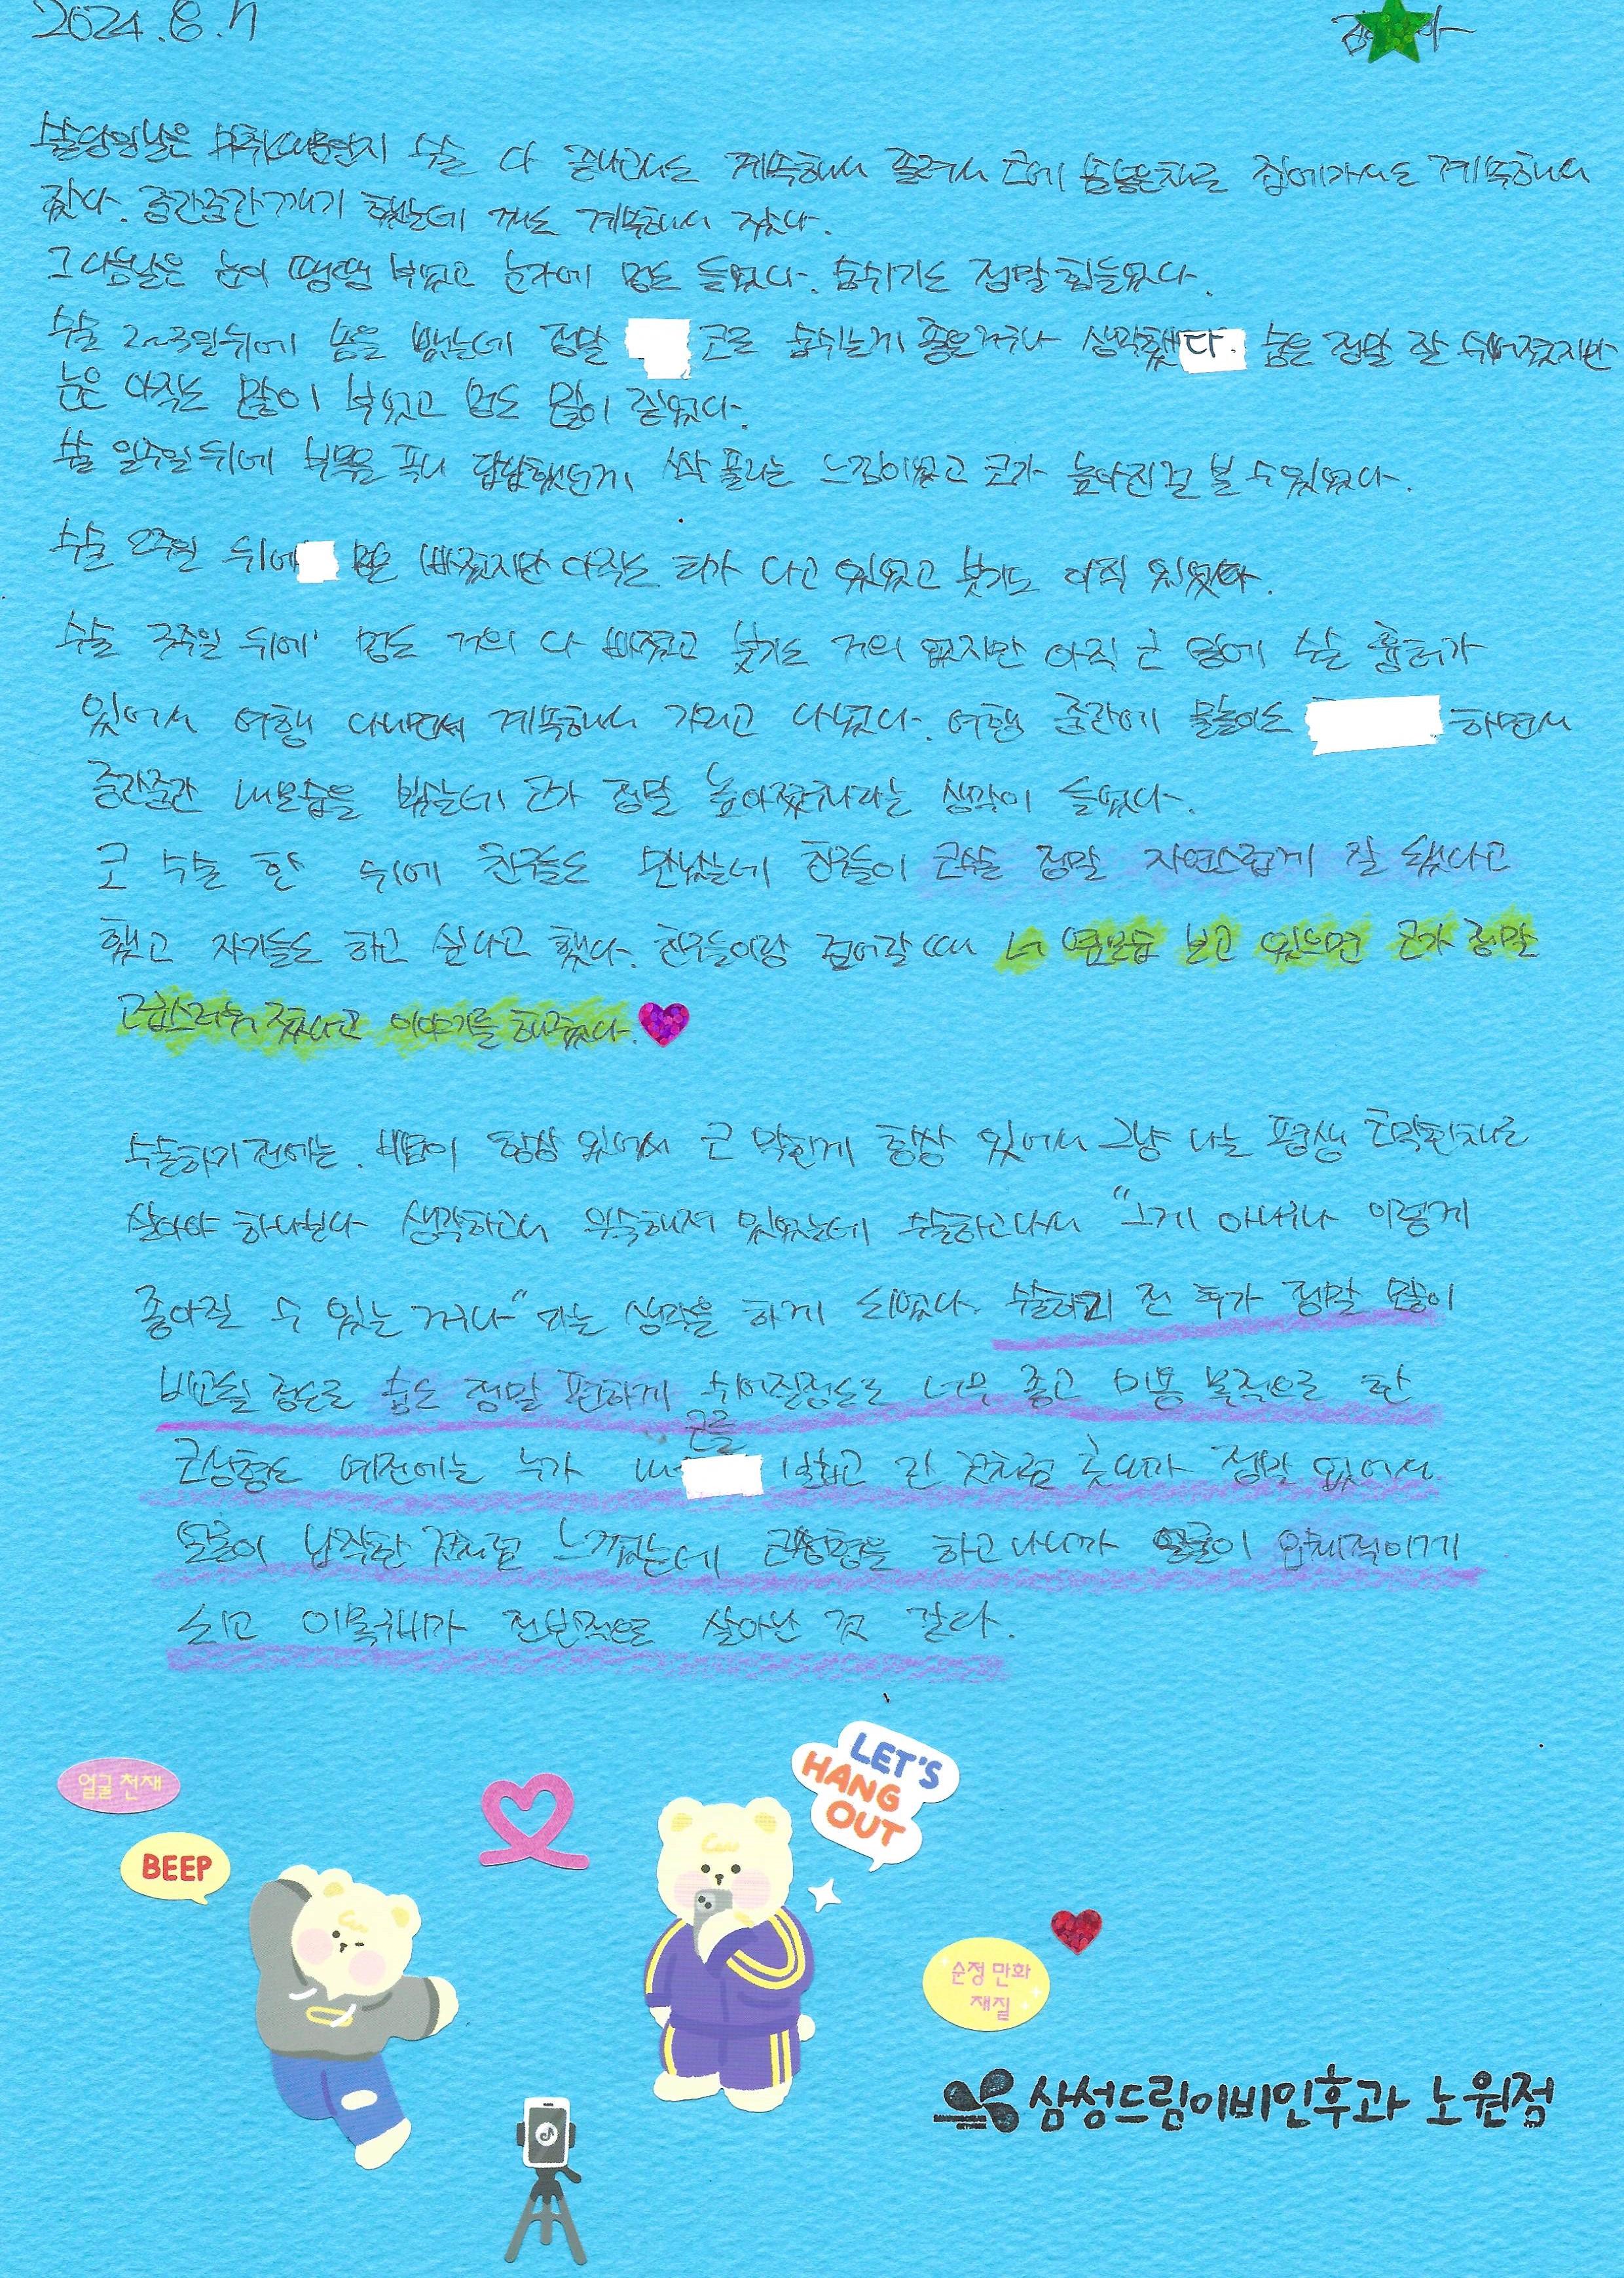 2024.8.7
수술당일날은 마취때문인지 수술 다 끝나고서도 계속해서 졸려서 코에 솜넣은채로 집에가서도 계속해서
잤다. 중간중간 깨기 했는데 깨도 계속해서 잤다.
그 다음날은 눈이 땡땡 부었고 눈가에 멍도 들었다. 숨쉬기도 정말 힘들었다.
수술 2~3일뒤에 솜을 뺐는데 정말 코로 숨쉬는게 좋은거구나 생각했다. 숨은 정말 잘 쉬어졌지만
눈은 아직도 많이 부었고 멍도 많이 들었다.
수술 일주일뒤에 부목을 푸니 답답했던게 싹 풀리는 느낌이었고 코가 높아진걸 볼 수 있었다.
수술 2주일 뒤에 멍은 빠졌지만 아직도 티가 나고 있었고 붓기도 아직 있었다.
수술 3주일 뒤에 멍도 거의 다 빠졌고 붓기도 거의 없지만 아직 코 밑에 수술 흉터가
있어서 여행 다니면서 계속해서 가리고 다녔다. 여행 중간에 물놀이도 하면서
중간중간 내모습을 봤는데 코가 정말 높아졌구나라는 생각이 들었다.
코 수술 한 뒤에 친구들도 만났는데 친구들이 코수술 정말 자연스럽게 잘 됐다고
했고 자기들도 하고 싶다고 했다. 친구들이랑 걸어갈 때 너 옆모습 보고 있으면 코가 정말
고급스러워 졌다고 이야기를 해주었다.
수술하기 전에는. 비염이 항상 있어서 코 막힌게 항상 있어서 그냥 나는 평생 코막힌채로
살아야 하나보다 생각하고서 익숙해져 있었는데 수술하고나서 "그게 아니구나 이렇게
좋아질 수 있는 거구나" 라는 생각을 하게 되었다. 수술하기 전 후가 정말 많이
비교될 정도로 숨도 정말 편하게 쉬어질정도로 너무 좋고 미용 목적으로 한
코성형도 예전에는 누가 내 코를 밟고 간 것처럼 콧대가 정말 없어서
얼굴이 납작한 것처럼 느껴졌는데 코성형을 하고나니까 얼굴이 입체적이게
되고 이목구비가 전반적으로 살아난 것 같다.
얼굴 천재
BEEP
LET'S
HANG
OUT
순정 만화
재질
삼성드림이비인후과 노원점